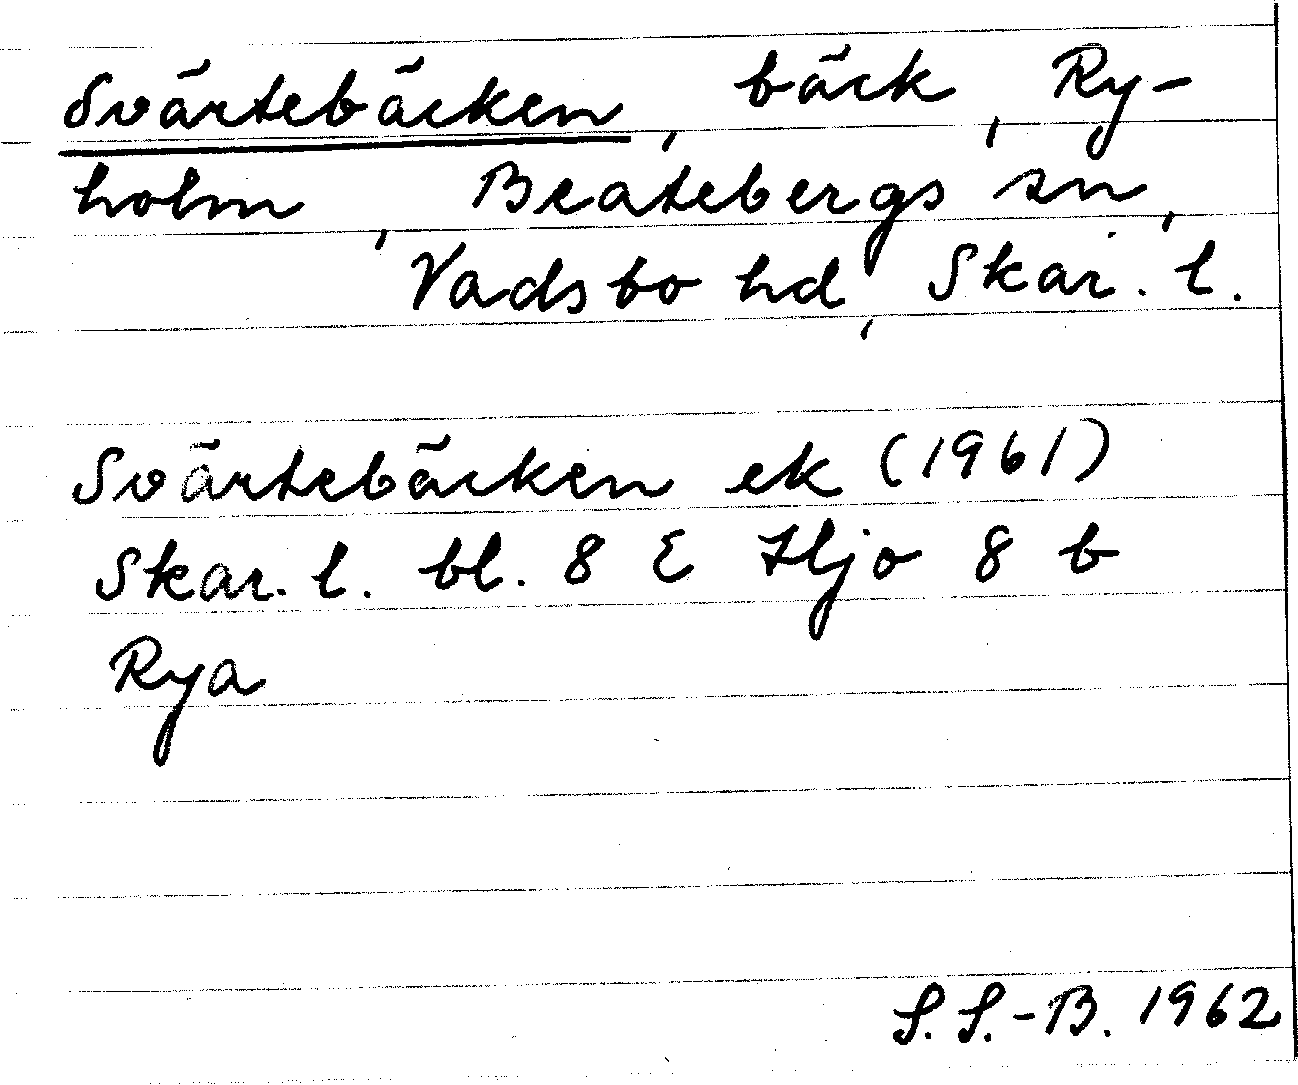 Svärtebäcken, bäck, Ry-
holm, Beatebergs sn,
Vadsbo hd, Skar. l.
Svärtebäcken ek (1961)
Skar. l. bl. 8 E Hjo 8 b
Rya
S. S.-B. 1962